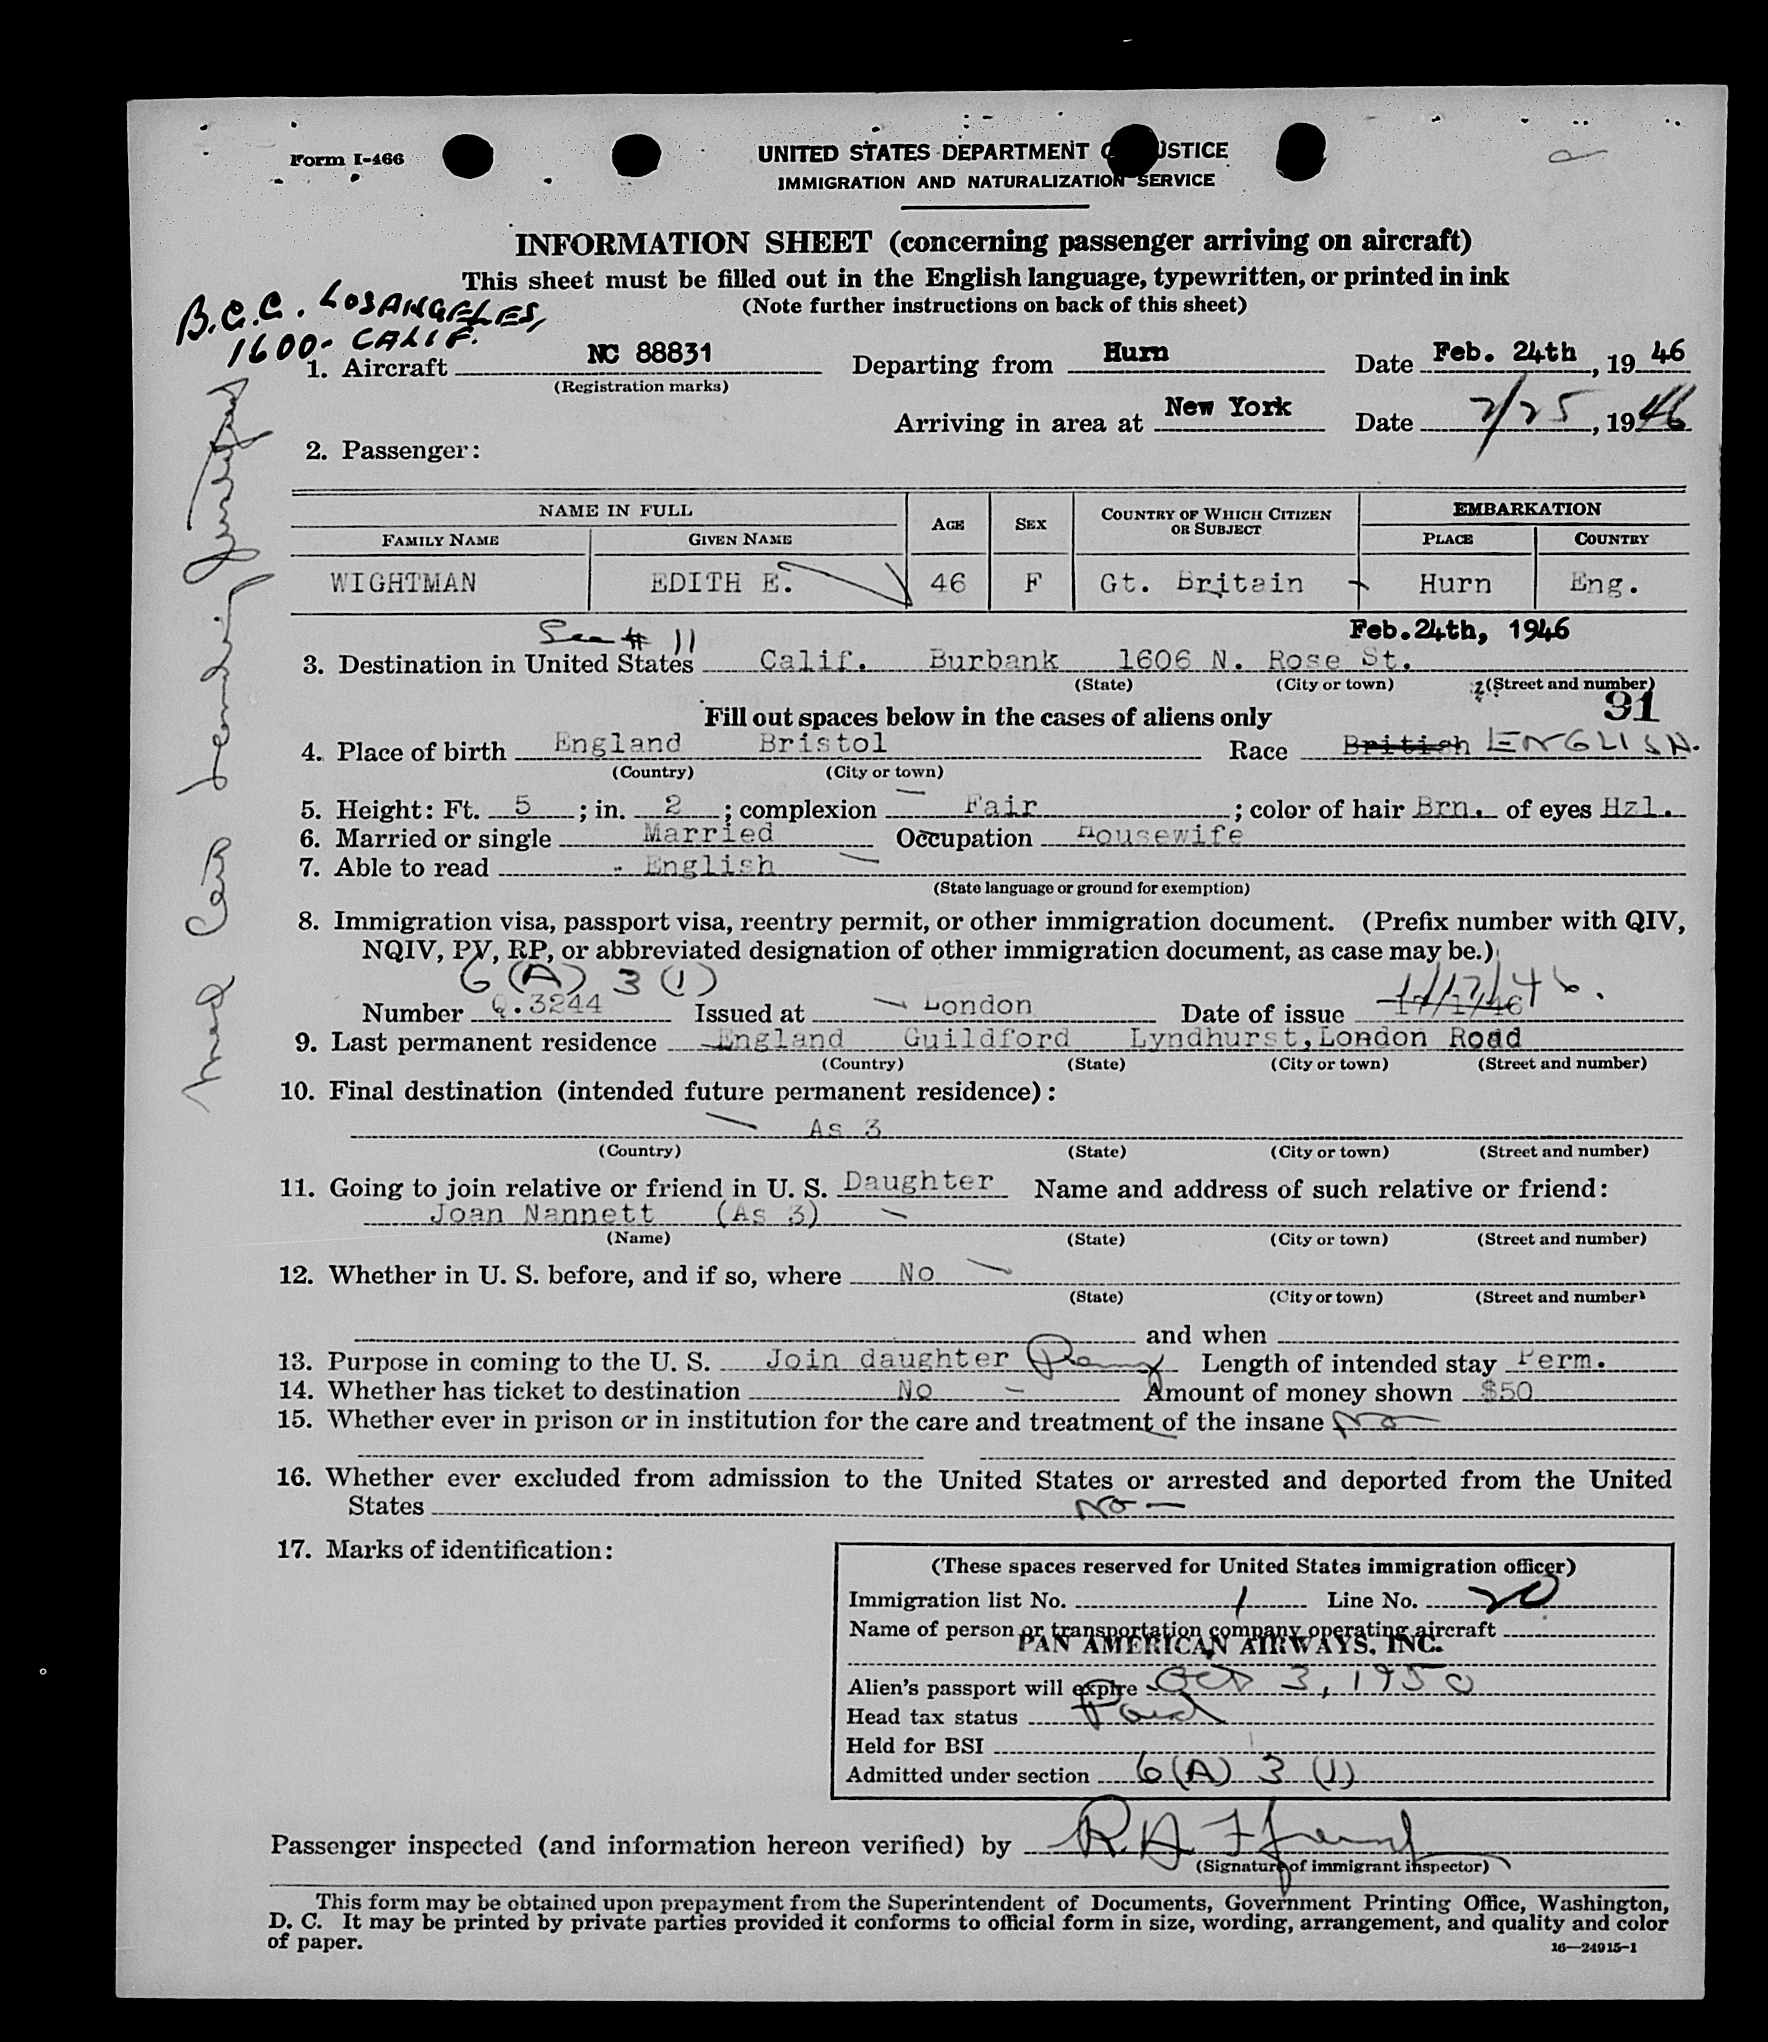 Form I-466
UNITED STATES DEPARTMENT O JUSTICE
IMMIGRATION AND NATURALIZATION SERVICE
INFORMATION SHEET (concerning passenger arriving on aircraft)
This sheet must be filled out in the English language, typewritten, or printed in ink
(Note further instructions on back of this sheet)
B.C.C. LOS ANGELES,
1600- CALIF.
1. Aircraft NC 88831 Departing from Hurn Date Feb. 24th, 1946
(Registration marks)
Arriving in area at New York Date 2/25, 1946
2. Passenger:
NAME IN FULL AGE SEX COUNTRY OF WHICH CITIZEN OR SUBJECT EMBARKATION
FAMILY NAME GIVEN NAME PLACE COUNTRY
WIGHTMAN EDITH E. 46 F Gt. Britain Hurn Eng.
Feb.24th, 1946
See # 11
3. Destination in United States Calif. Burbank 1606 N. Rose St.
(State) (City or town) (Street and number)
31
Fill out spaces below in the cases of aliens only
4. Place of birth England Bristol Race British ENGLISH.
(Country) (City or town)
5. Height: Ft. 5; in. 2; complexion Fair; color of hair Brn. of eyes Hzl.
6. Married or single Married Occupation Housewife
7. Able to read English
(State language or ground for exemption)
8. Immigration visa, passport visa, reentry permit, or other immigration document. (Prefix number with QIV,
NQIV, PV, RP, or abbreviated designation of other immigration document, as case may be.)
6 (A) 3 (1)
Number Q.3244 Issued at London Date of issue 17/1/46
9. Last permanent residence England Guildford Lyndhurst, London Road
(Country) (State) (City or town) (Street and number)
10. Final destination (intended future permanent residence):
As 3
(Country) (State) (City or town) (Street and number)
11. Going to join relative or friend in U. S. Daughter Name and address of such relative or friend:
Joan Nannett (As 3)
(Name) (State) (City or town) (Street and number)
12. Whether in U. S. before, and if so, where No
(State) (City or town) (Street and number)
and when
13. Purpose in coming to the U. S. Join daughter Length of intended stay Perm.
14. Whether has ticket to destination No Amount of money shown $50
15. Whether ever in prison or in institution for the care and treatment of the insane No
16. Whether ever excluded from admission to the United States or arrested and deported from the United
States No
17. Marks of identification:
(These spaces reserved for United States immigration officer)
Immigration list No. 1 Line No. 20
Name of person or transportation company operating aircraft
PAN AMERICAN AIRWAYS, INC.
Alien's passport will expire Oct 3, 1950
Head tax status Paid
Held for BSI
Admitted under section 6(A) 3 (1)
Passenger inspected (and information hereon verified) by
(Signature of immigrant inspector)
This form may be obtained upon prepayment from the Superintendent of Documents, Government Printing Office, Washington,
D. C. It may be printed by private parties provided it conforms to official form in size, wording, arrangement, and quality and color
of paper.
16—24915-1